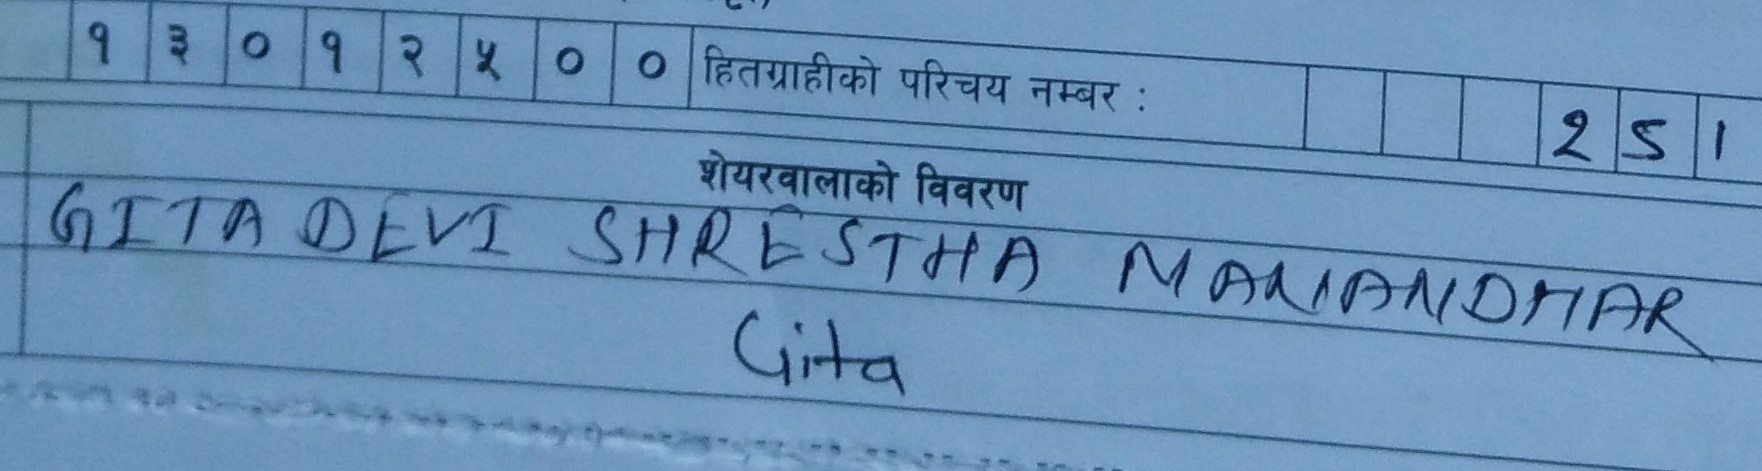 १३०१२५०० हितग्राहीको परिचय नम्बर : 251
शेयरवालाको विवरण
GITA DEVI SHRESTHA MANANDHAR
Gita